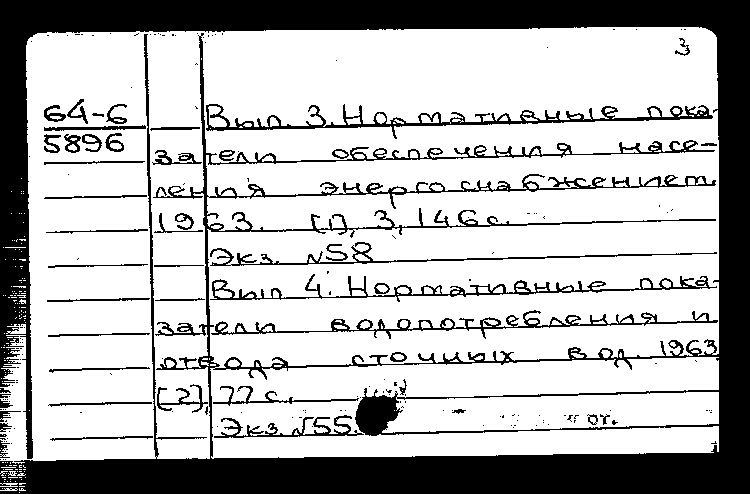 3
64-6
5896
Вып. 3. Нормативные пока-
затели обеспечения насе-
ления энергоснабжением.
1963. [1], 3, 146 с.
Экз. №58
Вып 4. Нормативные пока-
затели водопотребления и
отвода сточных вод. 1963
[2], 77 с.
Экз. №55.
от.